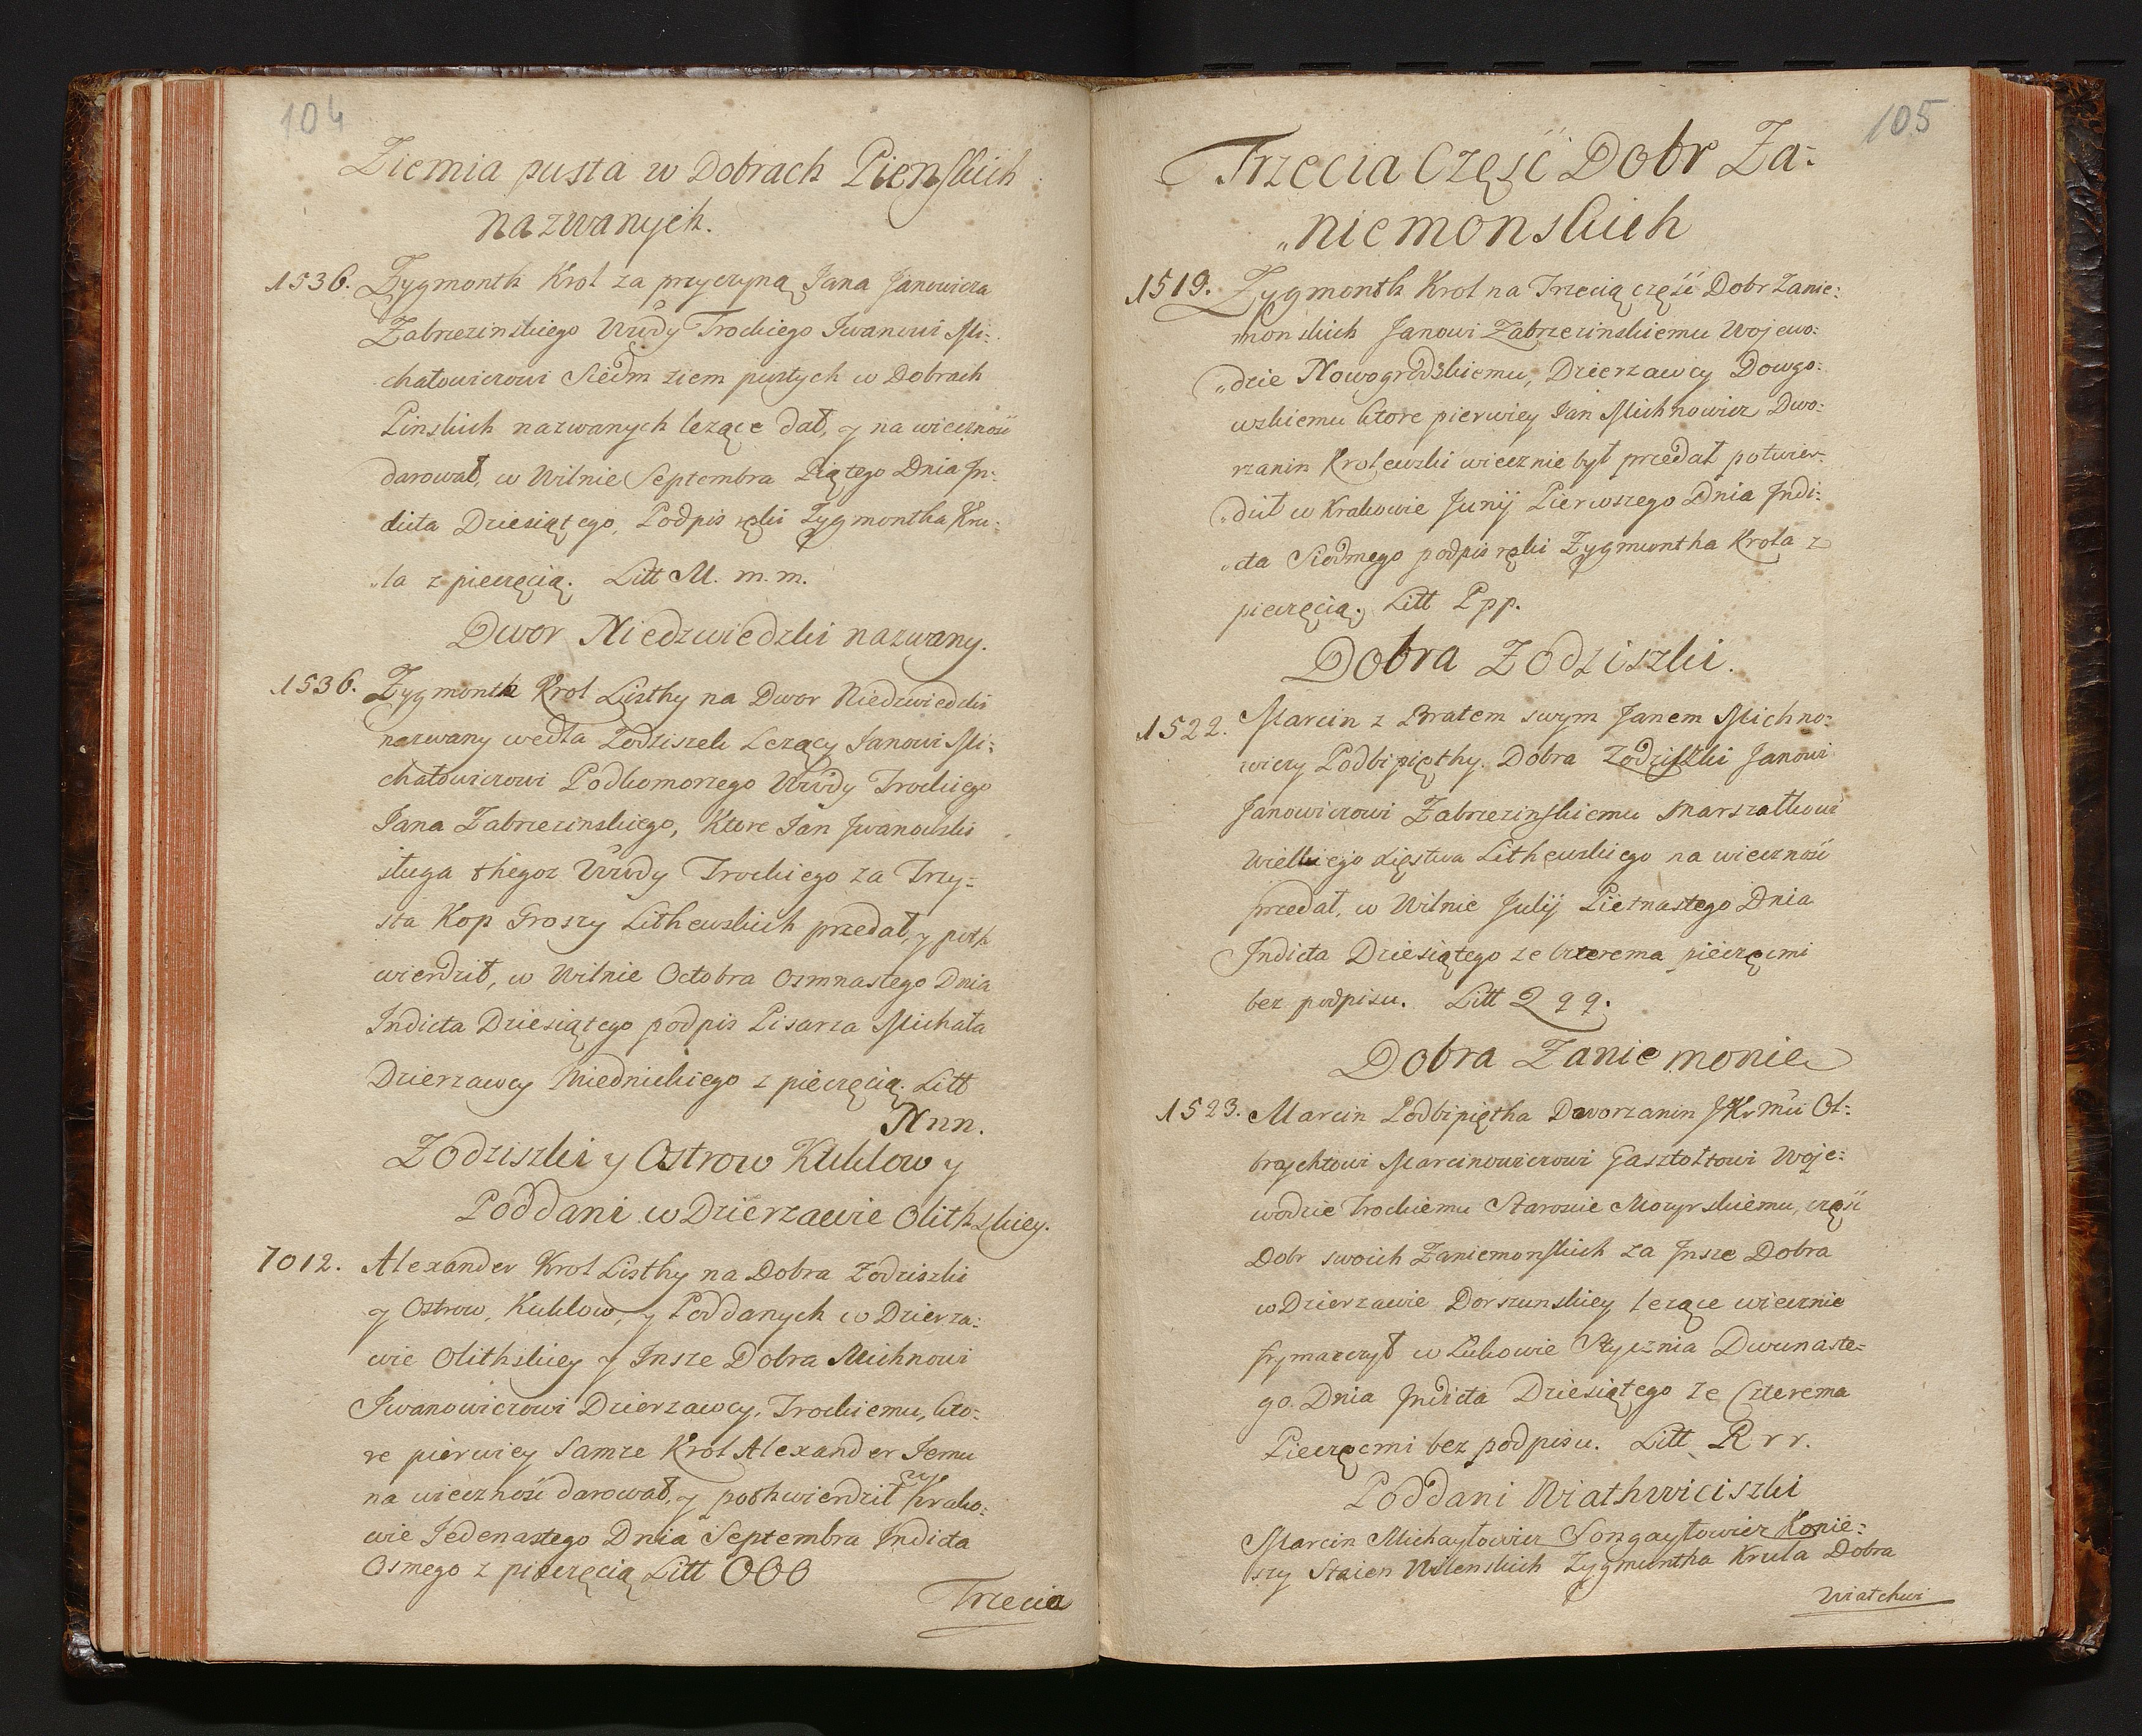 104
Ziemia pusta w Dobrach Pienskich
nazwanych.
1536. Zygmonth Krol za przyczyną Jana Janowicza
Zabrzezinskiego Wwdy Trockiego Iwanowi Mi:
chałowiczowi Siedm ziem pustych w Dobrach
Pinskich nazwanych lezące dał, y na wieczność
darował, w Wilnie Septembra Piątego Dnia In:
dicta Dziesiątego, Podpis ręki Zygmontha Kru:
„la z pieczęcią. Litt M. m. m.
Dwor Niedzwiedzki nazwany.
1536. Zygmonth Krol Listhy na Dwor Niedzwiedzki
nazwany wedla Zodziszek Lezący Janowi Mi:
chałowiczowi Podkomorzego Wwdy Trockiego
Jana Zabrzezinskiego, Ktore Jan Iwanowski
sługa thegoz Wwdy Trockiego za Trzy=
sta Kop Groszy Lithewskich przedał, y poth
wierdził, w Wilnie Octobra Osmnastego Dnia
Indicta Dziesiątego podpis Pisarza Michała
Dzierzawcy Miednickiego z pieczęcią. Litt
Nnn.
Zodziszki y Ostrow Kuklow y
Poddani w Dzierzawie Olithskiey.
7012. Alexander Krol Listhy na Dobra Zodziszki
y Ostrow, Kuklow, y Poddanych w Dzierza:
wie Olithskiey y Insze Dobra Michnowi
Iwanowiczowi Dzierzawcy, Trockiemu, kto:
re pierwiey Samze Krol Alexander Jemu
na wieczność darował, y pothwierdził w Krako:
wie Jedenastego Dnia Septembra Indicta
Osmego z pieczęcią Litt OOO
Trzecia
105
Trzecia Część Dobr Za:
„niemonskich
1519. Zygmonth Krol na Trzecią część Dobr Zanie:
monskich Janowi Zabrzezinskiemu Wojewo:
„dzie Nowogrodzkiemu, Dzierzawcy Dowgo:
wskiemu ktore pierwiey Jan Michnowicz Dwo:
rzanin Krolewski wiecznie był przedał potwier
„dził w Krakowie Junij Pierwszego Dnia Indi:
„cta Siodmego podpis ręki Zygmontha Krola z
pieczęcią. Litt Ppp.
Dobra Zodziszki.
1522. Marcin z Bratem swym Janem Michno:
wiczy Podbipięthy. Dobra Zodziszki Janowi
Janowiczowi Zabrzezinskiemu Marszałkowi
Wielkiego Xięstwa Lithewskiego na wieczność
przedał, w Wilnie Julij Pietnastego Dnia
Indicta Dziesiątego ze Czterema pieczęcmi
bez podpisu. Litt Qqq.
Dobra Zaniemonie
1523. Marcin Podbipiętha Dworzanin JKr Mci Ol:
brychtowi Marcinowiczowi Gasztołtowi Woje:
wodzie Trockiemu Staroscie Mozyrskiemu, część
Dobr swoich Zaniemonskich za Insze Dobra
w Dzierzawie Dorszunskiey lezące wiecznie
frymarczył w Łukowie Stycznia Dwunaste=
go Dnia Indicta Dziesiątego ze Czterema
Pieczęcmi bez podpisu. Litt Rrr.
Poddani Wiathwiciszki
Marcin Michayłowicz Songayłowicz Konie:
szy Staien Wilenskich Zygmuntha Krula Dobra
Wiatchwi